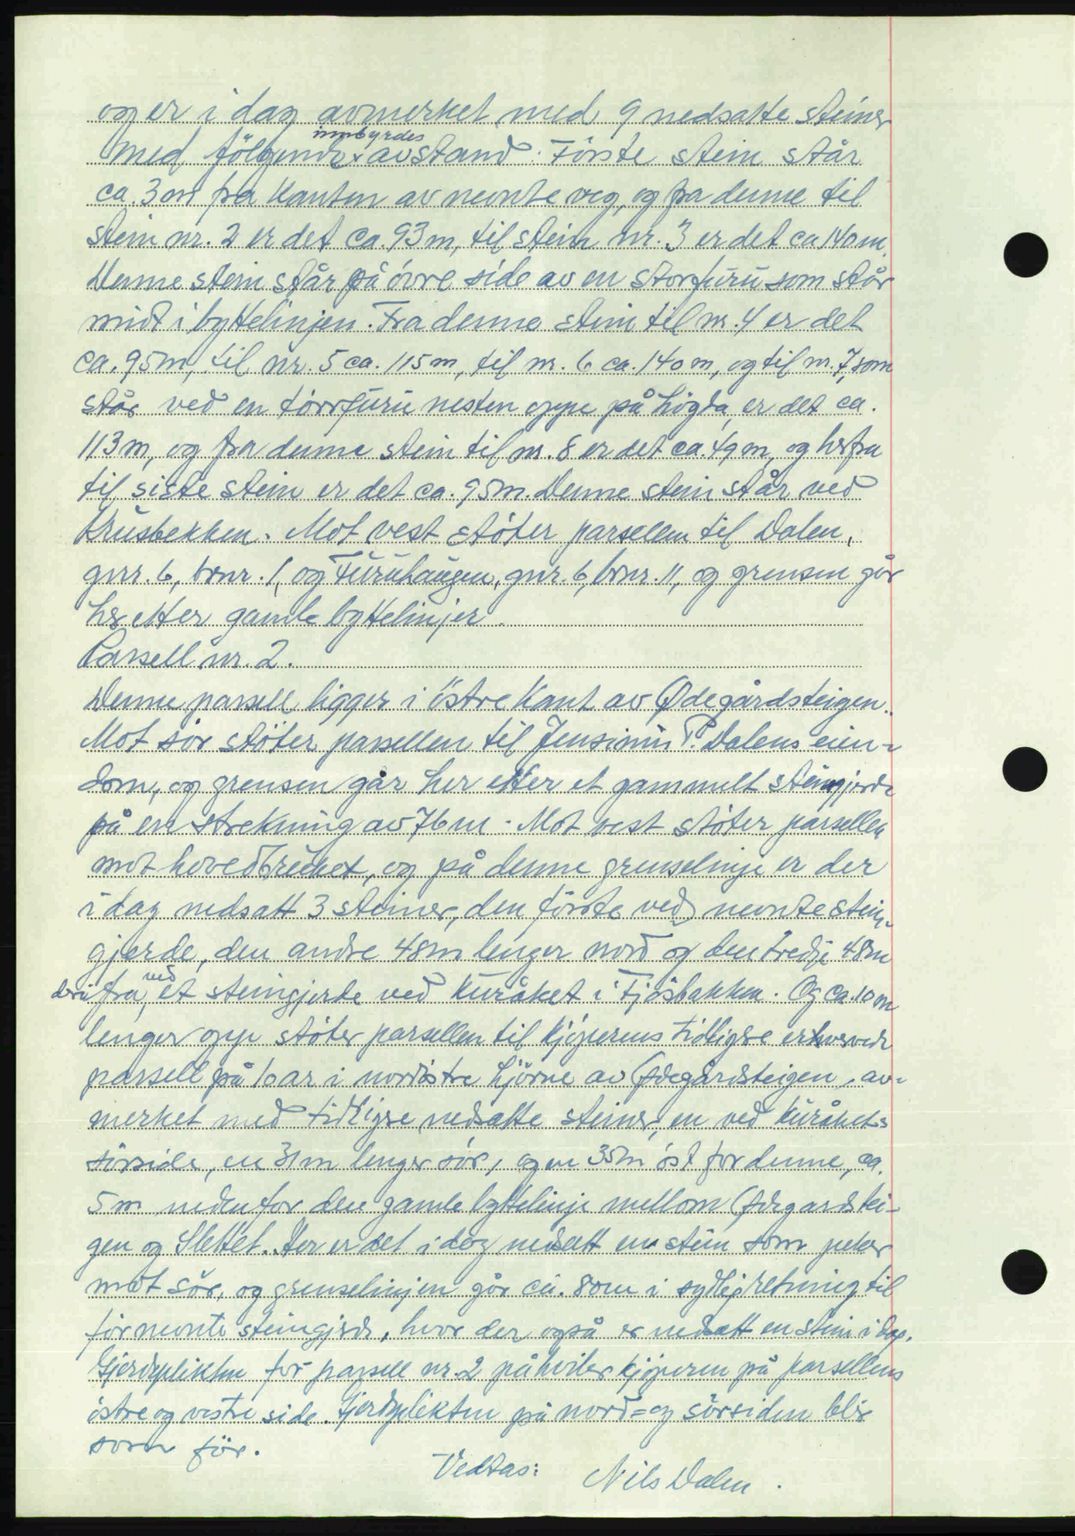 og er i dag avmerket med 9 nedsatte steiner
med følgende innbyrdes avstand. Første stein står
ca. 3 m fra kanten av nevnte veg, og fra denne til
stein nr. 2 er det ca 93 m, til stein nr. 3 er det ca 140 m.
Denne stein står på övre side av en storfuru som står
midt i byttelinjen. Fra denne stein til nr. 4 er det
ca. 95 m, til nr. 5 ca. 115 m, til nr. 6 ca. 140 m, og til nr. 7, som
står ved en törrfuru nesten oppe på högda, er det ca.
113 m, og fra denne stein til nr. 8 er det ca. 49 m, og herfra
til siste stein er det ca. 95 m. Denne stein står ved
Krusbekken. Mot vest støter parsellen til Dalen,
gnr. 6, bnr. 1, og Furuhaugen, gnr. 6, bnr. 11, og grensen går
her etter gamle byttelinjer.
Parsell nr. 2.
Denne parsell ligger i östre kant av Ødegårdsteigen.
Mot sör støter parsellen til Jensinus P. Dalens eien-
dom, og grensen går her etter et gammelt steingjerde
på en strekning av 76 m. Mot vest støter parsellen
mot hovedbruket, og på denne grenselinje er der
i dag nedsatt 3 steiner, den første ved nevnte stein-
gjerde, den andre 48 m lenger nord og den tredje 48 m
derifra, ved et steingjerde ved kuråket i Fjøsbakken. Og ca. 10 m
lenger oppe støter parsellen til kjøperens tidligere ervervede
parsell på 16 ar i nordöstre hjörne av Ødegårdsteigen, av-
merket med tidligere nedsatte steiner, en ved kuråkets
sörside, en 31 m lenger sör, og en 35 m öst for denne, ca.
5 m nedenfor den gamle byttelinje mellom Ødegardstei-
gen og Slettet. Her er det i dag nedsatt en stein som peker
mot sör, og grenselinjen går ca. 80 m i sydlig retning til
förnevnte steingjerde, hvor der også er nedsatt en stein i dag.
Gjerdeplikten for parsell nr. 2 påhviler kjøperen på parsellens
östre og vestre side. Gjerdeplikten på nord- og sörsiden blir
som för.
Vedtas: Nils Dalen.